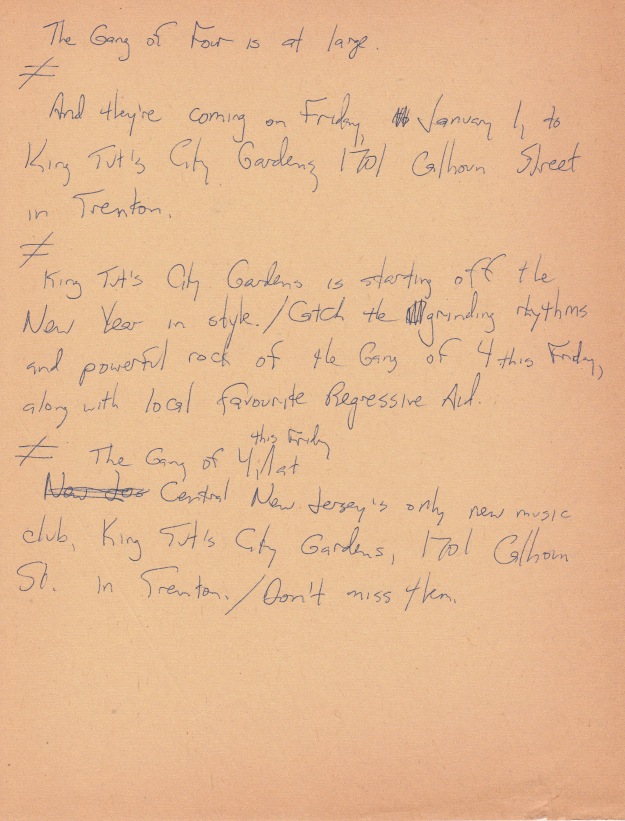 The Gang of Four is at large.
≠
And they're coming on Friday, January 1, to
King Tut's City Gardens 1701 Calhoun Street
in Trenton.
≠
King Tut's City Gardens is starting off the
New Year in style. / Catch the grinding rhythms
and powerful rock of the Gang of 4 this Friday,
along with local favourite Regressive Aid.
≠ The Gang of 4, this Friday / at
New Jer Central New Jersey's only new music
club, King Tut's City Gardens, 1701 Calhoun
St. in Trenton. / Don't miss them.